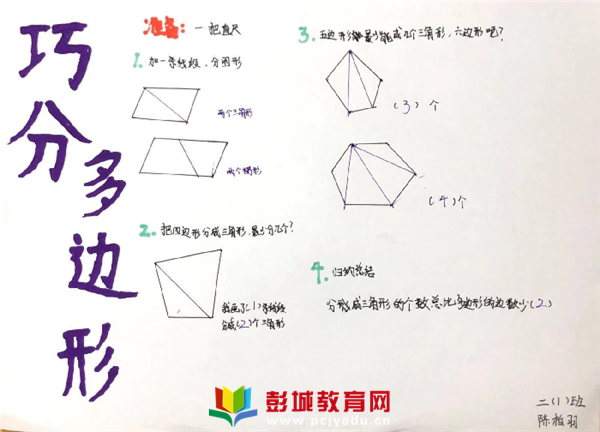 巧分多边形
准备：一把直尺
1. 加一条线段，分图形
两个三角形
两个梯形
2. 把四边形分成三角形，最少分几个？
我画了（1）条线段
分成（2）个三角形
3. 五边形最少能成几个三角形，六边形呢？
（3）个
（4）个
4. 归纳总结
分形成三角形的个数总比多边形的边数少（2）
二（1）班
陈柏羽
彭城教育网
www.pcjyedu.cn